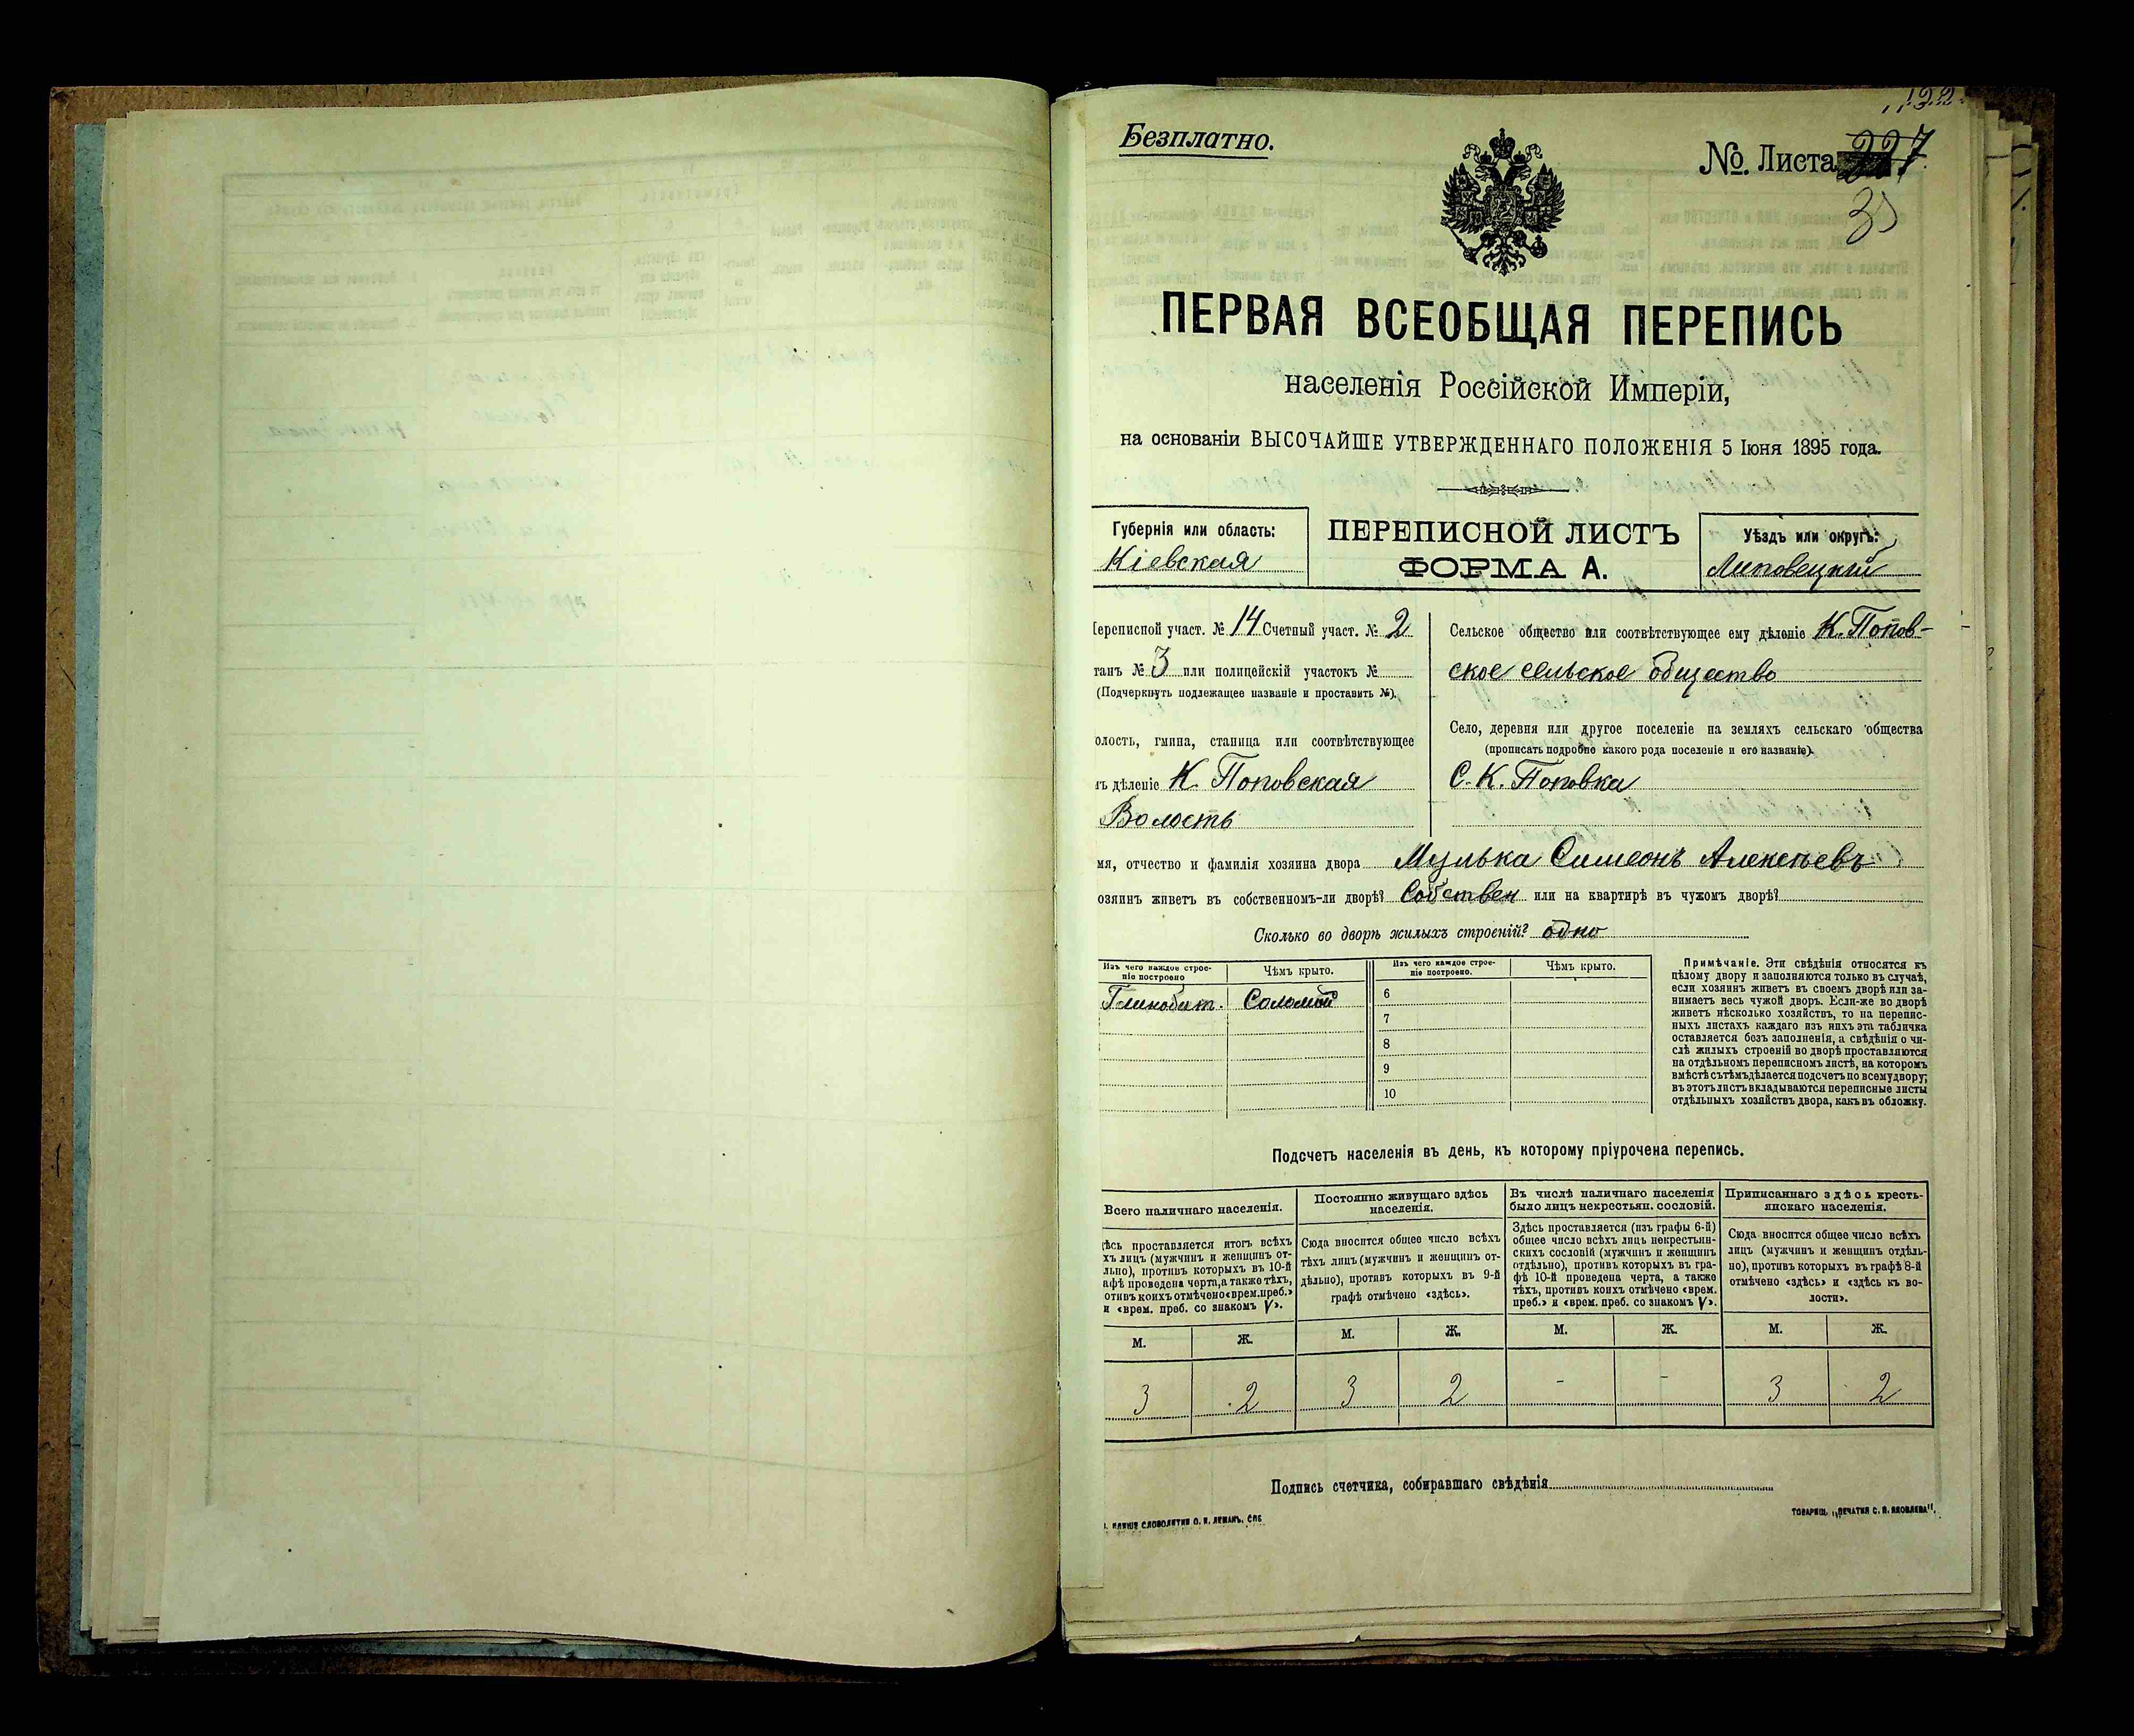 Безплатно.
№. Листа 227
35
ПЕРВАЯ ВСЕОБЩАЯ ПЕРЕПИСЬ
населенія Россійской Имперіи,
на основаніи ВЫСОЧАЙШЕ УТВЕРЖДЕННАГО ПОЛОЖЕНІЯ 5 Іюня 1895 года.
Губернія или область:
Кіевская
ПЕРЕПИСНОЙ ЛИСТЪ
ФОРМА А.
Уѣздъ или округъ:
Липовецкій
ереписной участ. № 14 Счетный участ. № 2
танъ № 3 или полицейскій участокъ №
(Подчеркнуть подлежащее названіе и проставить №).
олость, гмина, станица или соотвѣтствующее
ъ дѣленіе К. Поповская
Волость
Сельское общество или соотвѣтствующее ему дѣленіе К. Попов-
ское сельское общество
Село, деревня или другое поселеніе на земляхъ сельскаго общества
(прописать подробно какого рода поселеніе и его названіе).
С. К. Поповка
мя, отчество и фамилія хозяина двора Мулька Симеонъ Алексѣевъ
озяинъ живетъ въ собственномъ-ли дворѣ? Собствен или на квартирѣ въ чужомъ дворѣ?
Сколько во дворѣ жилыхъ строеній? одно
Изъ чего каждое строе-
ніе построено
Чѣмъ крыто.
Глинобит. Соломой
Изъ чего каждое строе-
ніе построено.
Чѣмъ крыто.
6
7
8
9
10
Примѣчаніе. Эти свѣдѣнія относятся къ
цѣлому двору и заполняются только въ случаѣ,
если хозяинъ живетъ въ своемъ дворѣ или за-
нимаетъ весь чужой дворъ. Если-же во дворѣ
живетъ нѣсколько хозяйствъ, то на перепис-
ныхъ листахъ каждаго изъ нихъ эта табличка
оставляется безъ заполненія, а свѣдѣнія о чи-
слѣ жилыхъ строеній во дворѣ проставляются
на отдѣльномъ переписномъ листѣ, на которомъ
вмѣстѣ съ тѣмъ дѣлается подсчетъ по всему двору;
въ этотъ листъ вкладываются переписные листы
отдѣльныхъ хозяйствъ двора, какъ въ обложку.
Подсчетъ населенія въ день, къ которому пріурочена перепись.
Всего наличнаго населенія.
ѣсь проставляется итогъ всѣхъ
хъ лицъ (мужчинъ и женщинъ от-
льно), противъ которыхъ въ 10-й
афѣ проведена черта, а также тѣхъ,
отивъ коихъ отмѣчено «врем. преб.»
и «врем. преб. со знакомъ V».
Постоянно живущаго здѣсь
населенія.
Сюда вносится общее число всѣхъ
тѣхъ лицъ (мужчинъ и женщинъ от-
дѣльно), противъ которыхъ въ 9-й
графѣ отмѣчено «здѣсь».
Въ числѣ наличнаго населенія
было лицъ некрестьян. сословій.
Здѣсь проставляется (изъ графы 6-й)
общее число всѣхъ лицъ некрестьян-
скихъ сословій (мужчинъ и женщинъ
отдѣльно), противъ которыхъ въ гра-
фѣ 10-й проведена черта, а также
тѣхъ, противъ коихъ отмѣчено «врем.
преб.» и «врем. преб. со знакомъ V».
Приписаннаго здѣсь кресть-
янскаго населенія.
Сюда вносится общее число всѣхъ
лицъ (мужчинъ и женщинъ отдѣль-
но), противъ которыхъ въ графѣ 8-й
отмѣчено «здѣсь» и «здѣсь къ во-
лости».
М. Ж. М. Ж. М. Ж. М. Ж.
3 2 3 2 - - 3 2
Подпись счетчика, собиравшаго свѣдѣнія
СЛОВОЛИТНИ О. И. ЛЕМАНЪ, СПБ
ТОВАРИЩ. „ПЕЧАТНЯ С. П. ЯКОВЛЕВА".